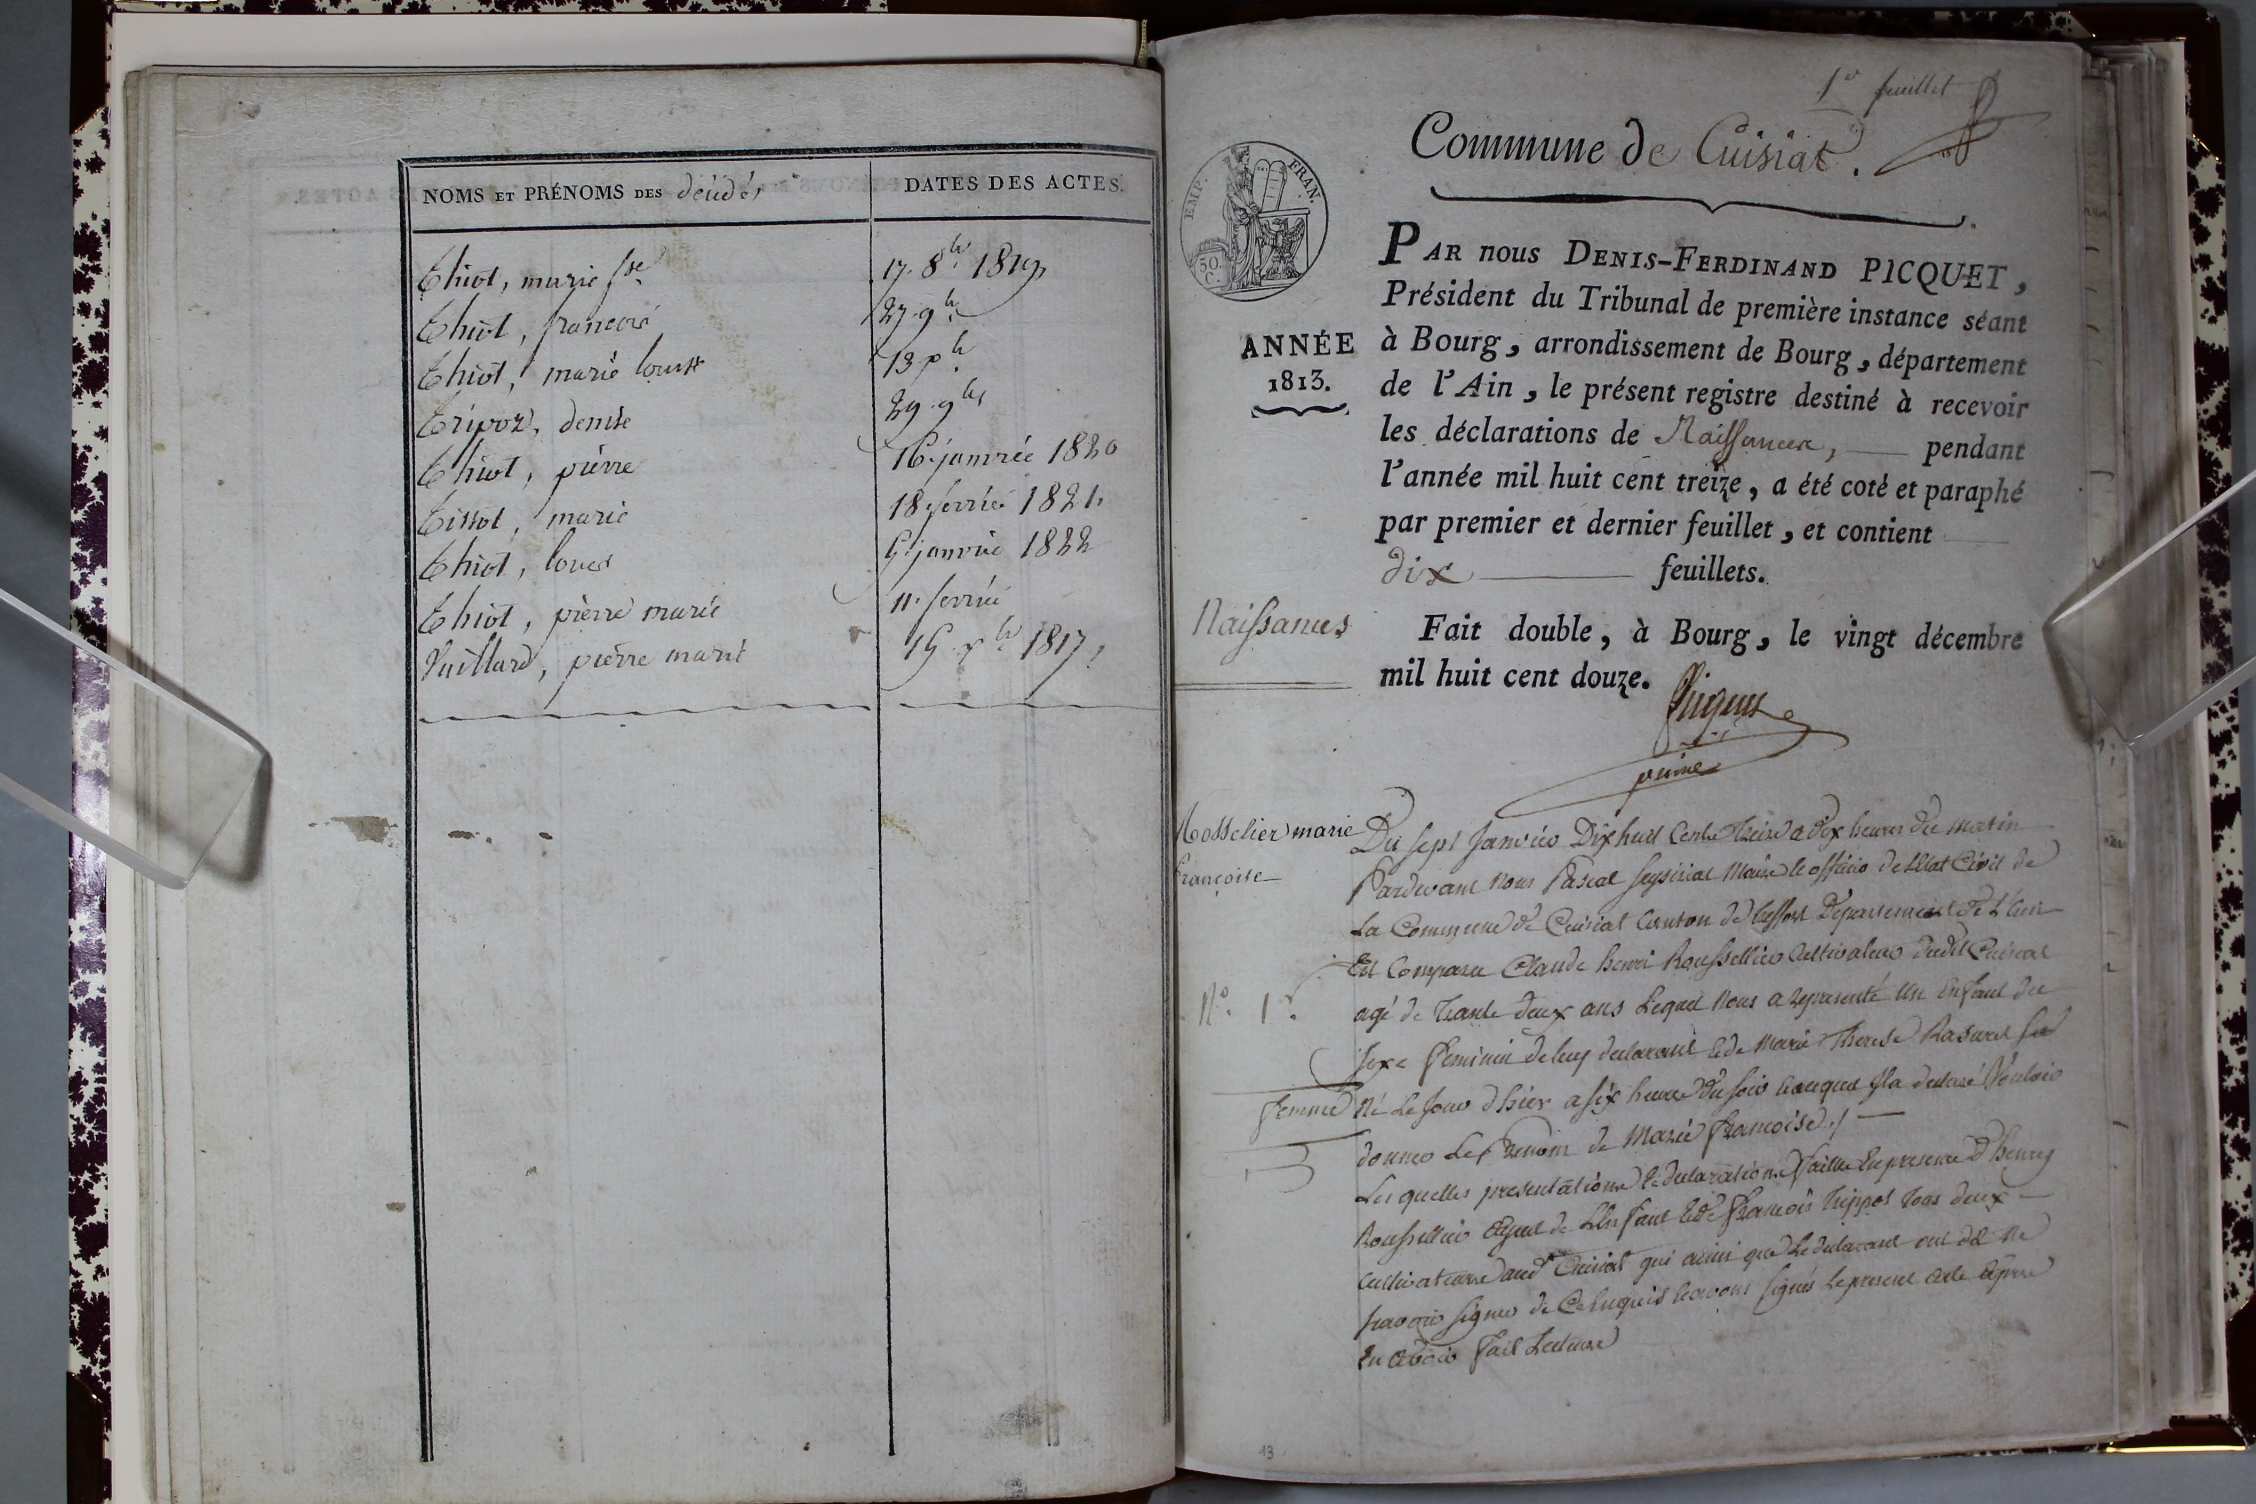 NOMS ET PRÉNOMS DES décédés
DATES DES ACTES.
Thiot, marie fse
17. 8bre 1819,
Thiot, francois
27. 9b.
Thiot, marie louise
13 xb.
Tripoz, denise
29. 9bre
Thiot, pierre
16. janvier 1820
Tissot, marie
18 fevrier 1821.
Thiot, louis
5 janvier 1822
Thiot, pierre marie
11. fevrier
Vuillard, pierre marie
15 xbre 1817,
1er feuillet
Commune de Cuisiat.
EMP. FRAN.
50. C.
ANNÉE
1813.
PAR nous DENIS-FERDINAND PICQUET,
Président du Tribunal de première instance séant
à Bourg, arrondissement de Bourg, département
de l'Ain, le présent registre destiné à recevoir
les déclarations de Naissances, pendant
l'année mil huit cent treize, a été coté et paraphé
par premier et dernier feuillet, et contient
dix feuillets.
Fait double, à Bourg, le vingt décembre
mil huit cent douze.
Picquet
Naissances
Rosselier marie
françoise
N° 1er
femme
Du sept Janvier Dix huit Cents Treize a Dix heures du matin
Pardevant Nous Pascal Maire & officier de Létat Civil de
La Commune de Cuisiat Canton de Departement de L'ain
Est Comparu Claude henri Roussellier Cultivateur dudit Cuisiat
agé de Trante deux ans Lequel Nous a representé un Enfant du
sexe feminin de luy declarant & de Marie Therese Rasurel sa
Né Le Jour d'hier a six heure du soir auquel Il a declaré Vouloir
donner Les Prenom de Marie Francoise ./
Les quelles presentations & declarations faittes En presence d'henry
Roussellier ayeul de L'enfant & de François Trippoz Tous deux
Cultivateurs aud. Cuisiat qui ainsi que Le declarant ont dit Ne
savoir signer de Ce Enquis & avons signés Le present acte Apres
En Avoir fait Lecture
13